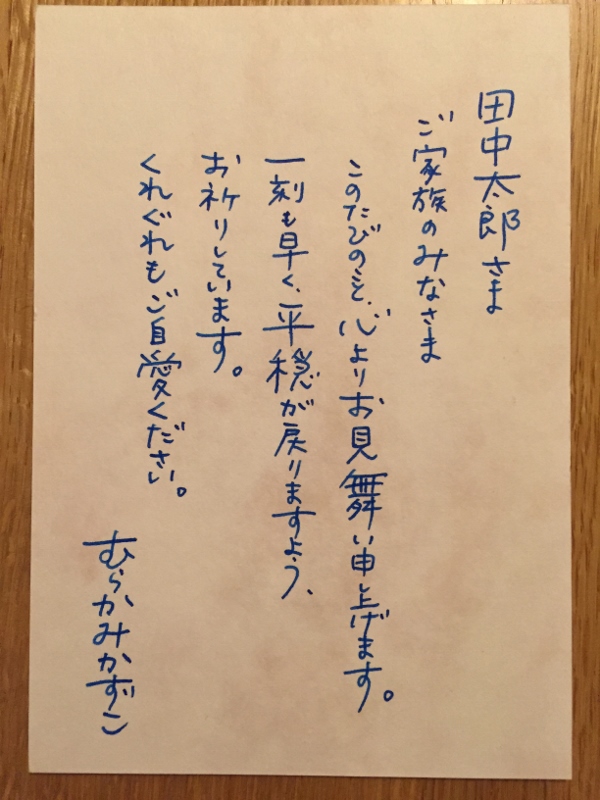 田中太郎さま
ご家族のみなさま
このたびのこと、心よりお見舞い申上げます。
一刻も早く、平穏が戻りますよう、
お祈りしています。
くれぐれもご自愛ください。
むらかみかずこ